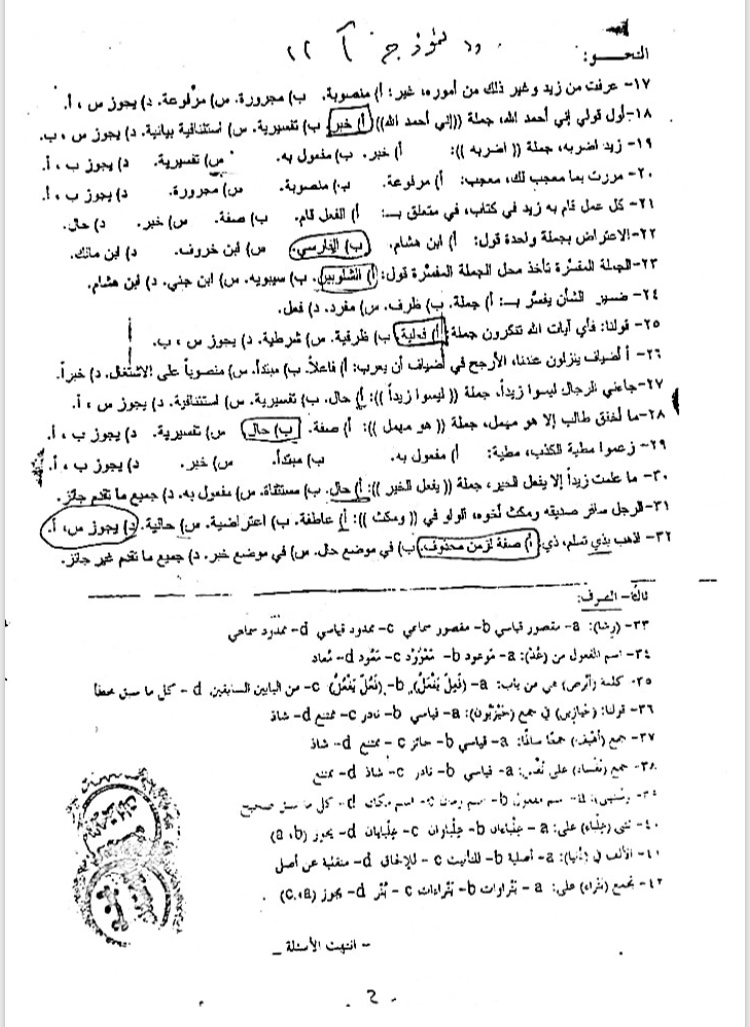 نموذج آ ٢٢
النحــو:
١٧- عرفت من زيد وغير ذلك من أموره، خبر: أ) منصوبة. ب) مجرورة. س) مرفوعة. د) يجوز س ، أ.
١٨- أول قولي إني أحمد الله، جملة ((إني أحمد الله)) أ) خبر. ب) تفسيرية. س) استئنافية بيانية. د) يجوز س ، ب.
١٩- زيد اضربه، جملة (( اضربه )): أ) خبر. ب) مفعول به. س) تفسيرية. د) يجوز ب ، أ.
٢٠- مررت بما معجب لك، معجب: أ) مرفوعة. ب) منصوبة. س) مجرورة. د) يجوز ب ، أ.
٢١- كل عمل قام به زيد في كتاب، في متعلق بـ: أ) الفعل قام. ب) صفة. س) خبر. د) حال.
٢٢- الاعتراض بجملة واحدة قول: أ) ابن هشام. ب) الفارسي. س) ابن خروف. د) ابن مالك.
٢٣- الجملة المفسّرة تأخذ محل الجملة المفسَّرة قول: أ) الشلوبين. ب) سيبويه. س) ابن جني. د) ابن هشام.
٢٤- ضمير الشأن يفسَّر بـ: أ) جملة. ب) ظرف. س) مفرد. د) فعل.
٢٥- قولنا: فأي آيات الله تنكرون جملة: أ) فعلية. ب) ظرفية. س) شرطية. د) يجوز س ، ب.
٢٦- أ لضياف ينزلون عندنا، الأرجح في أضياف أن يعرب: أ) فاعلاً. ب) مبتدأ. س) منصوباً على الاشتغال. د) خبراً.
٢٧- جاءني الرجال ليسوا زيداً، جملة (( ليسوا زيداً )): أ) حال. ب) تفسيرية. س) استئنافية. د) يجوز س ، أ.
٢٨- ما أخفق طالب إلا هو مهمل، جملة (( هو مهمل )): أ) صفة. ب) حال. س) تفسيرية. د) يجوز ب ، أ.
٢٩- زعموا مطية الكذب، مطية: أ) مفعول به. ب) مبتدأ. س) خبر. د) يجوز ب ، أ.
٣٠- ما علمت زيداً إلا يفعل الخير، جملة (( يفعل الخير )): أ) حال. ب) مستثناة. س) مفعول به. د) جميع ما تقدم جائز.
٣١- الرجل سافر صديقه ومكث أخوه، الواو في (( ومكث )): أ) عاطفة. ب) اعتراضية. س) حالية. د) يجوز س، أ.
٣٢- اذهب بذي تسلم، ذي: أ) صفة لزمن محذوف. ب) في موضع حال. س) في موضع خبر. د) جميع ما تقدم غير جائز.
ثالثاً- الصرف:
٣٣- (رشا): a- مقصور قياسي b- مقصور سماعي c- ممدود قياسي d- ممدود سماعي
٣٤- اسم المفعول من (عُدْ): a- موعود b- مَعْوُوْد c- مَعُود d- مُعاد
٣٥- كلمة من باب: a- b- c- من البابين السابقين d- كل ما سبق خطأ
٣٦- قولنا: في جمع a- قياسي b- نادر c- ممتنع d- شاذ
٣٧- جمع (أهيف) جمعًا سالمًا: a- قياسي b- جائز c- ممتنع d- شاذ
٣٨- جمع (نفساء) على a- قياسي b- نادر c- شاذ d- ممتنع
٣٩- a- اسم مفعول b- اسم زمان c- اسم مكان d- كل ما سبق صحيح
٤٠- تثنى (عِلْباء) على: a- علباءان b- علباوان c- علبايان d- يجوز (a ،b)
٤١- الألف في (دنيا): a- أصلية b- للتأنيث c- للإلحاق d- منقلبة عن أصل
٤٢- تجمع (بتراء) على: a- بَتْراوات b- بَتْراءات c- بُتْر d- يجوز (a ،c)
- انتهت الأسئلة -